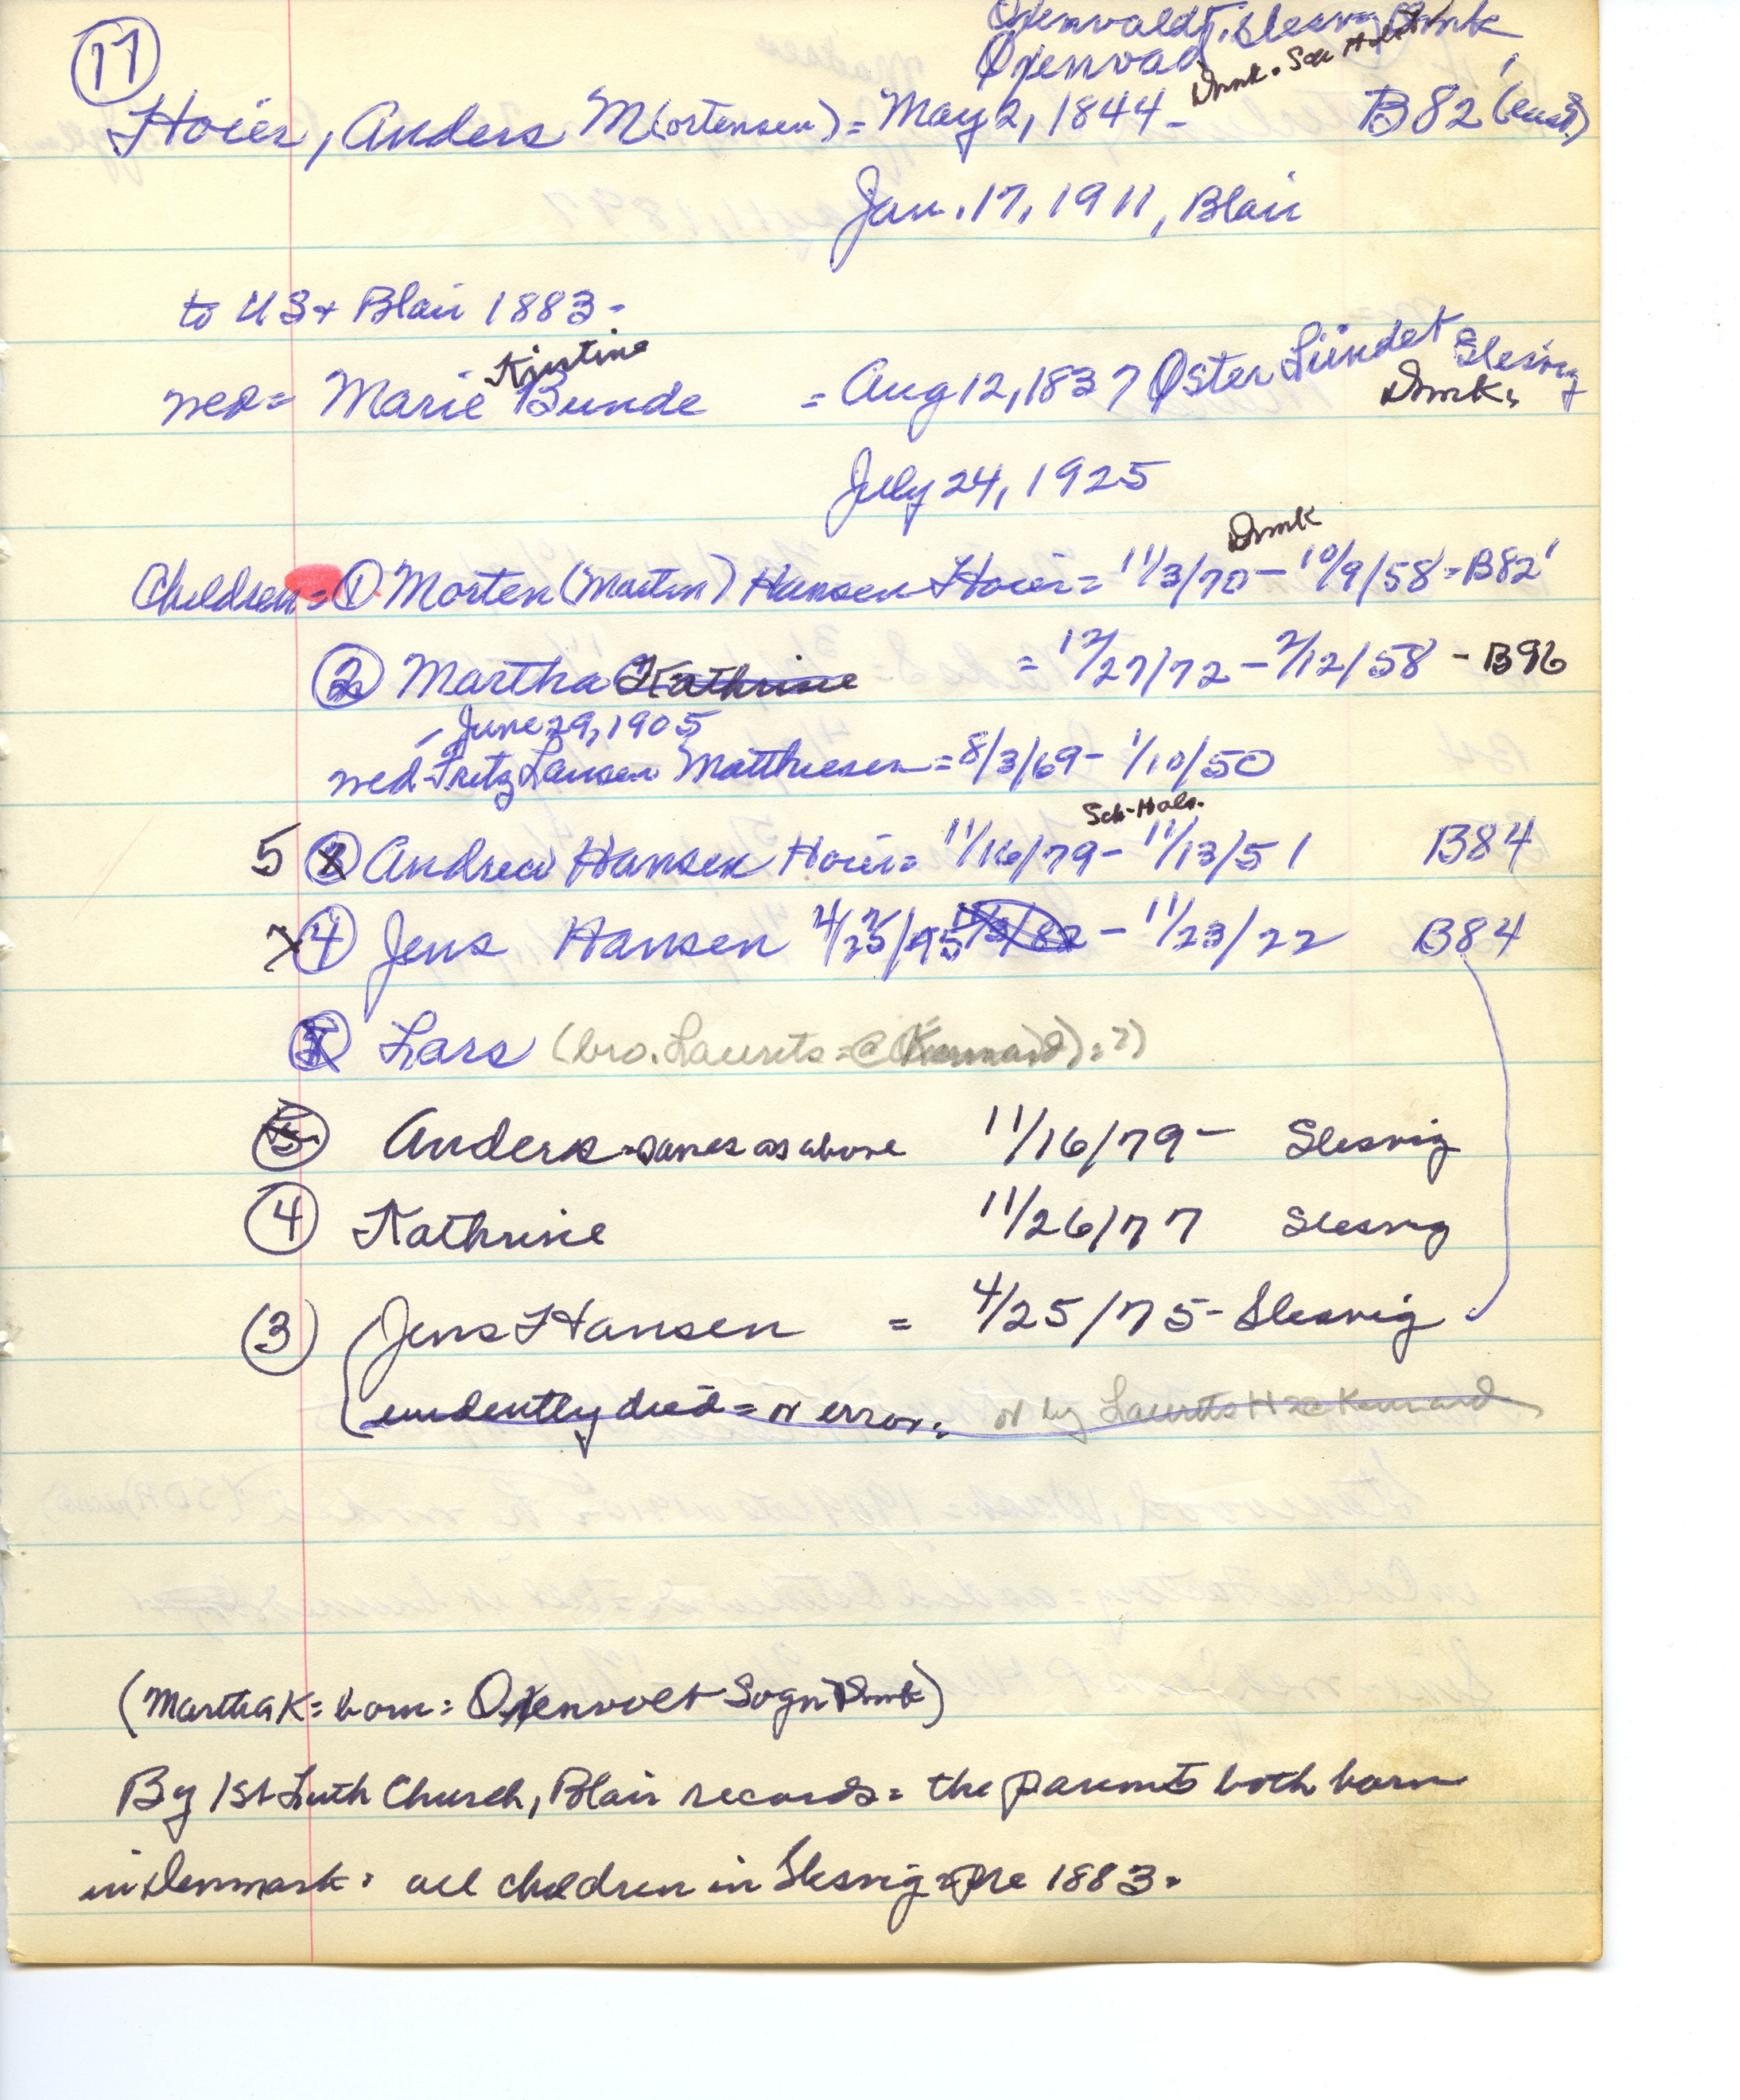 17
Oxenvaldt, Slesvig Dmk
Oxenvad
Dmk. Sch Holst
Hoier, Anders M(ortensen) = May 2, 1844 - B82' (east)
Jan. 17, 1911, Blair
to US + Blair 1883 -
Kjrstine
wed = Marie Bunde = Aug 12, 1837 Øster Lündet Slesvig
Dmk.
July 24, 1925
Dmk
Children = ① Morten (Martin) Hansen Hoier = 11/3/70 - 10/9/58 = B82'
② Martha Kathrine = 12/27/72 - 2/12/58 - B96
- June 29, 1905
wed Fritz Lausen Matthiesen = 8/3/69 - 1/10/50
Sch-Hols.
5 Andrew Hansen Hoier = 11/16/79 - 11/13/51 B84
④ Jens Hansen 4/25/75 - 11/23/22 B84
Lars (bro. Laurits = @ Kennard) = ?)
⑤ Anders - same as above 11/16/79 - Slesvig
④ Kathrine 11/26/77 Slesvig
(3) Jens Hansen = 4/25/75 - Slesvig
evidently died = or error. or by Laurits H @ Kennard
(Martha K = born = Oxenvolt Sogn Dmk)
By 1st Luth Church, Blair records = the parents both born
in Denmark = all children in Slesvig = pre 1883.